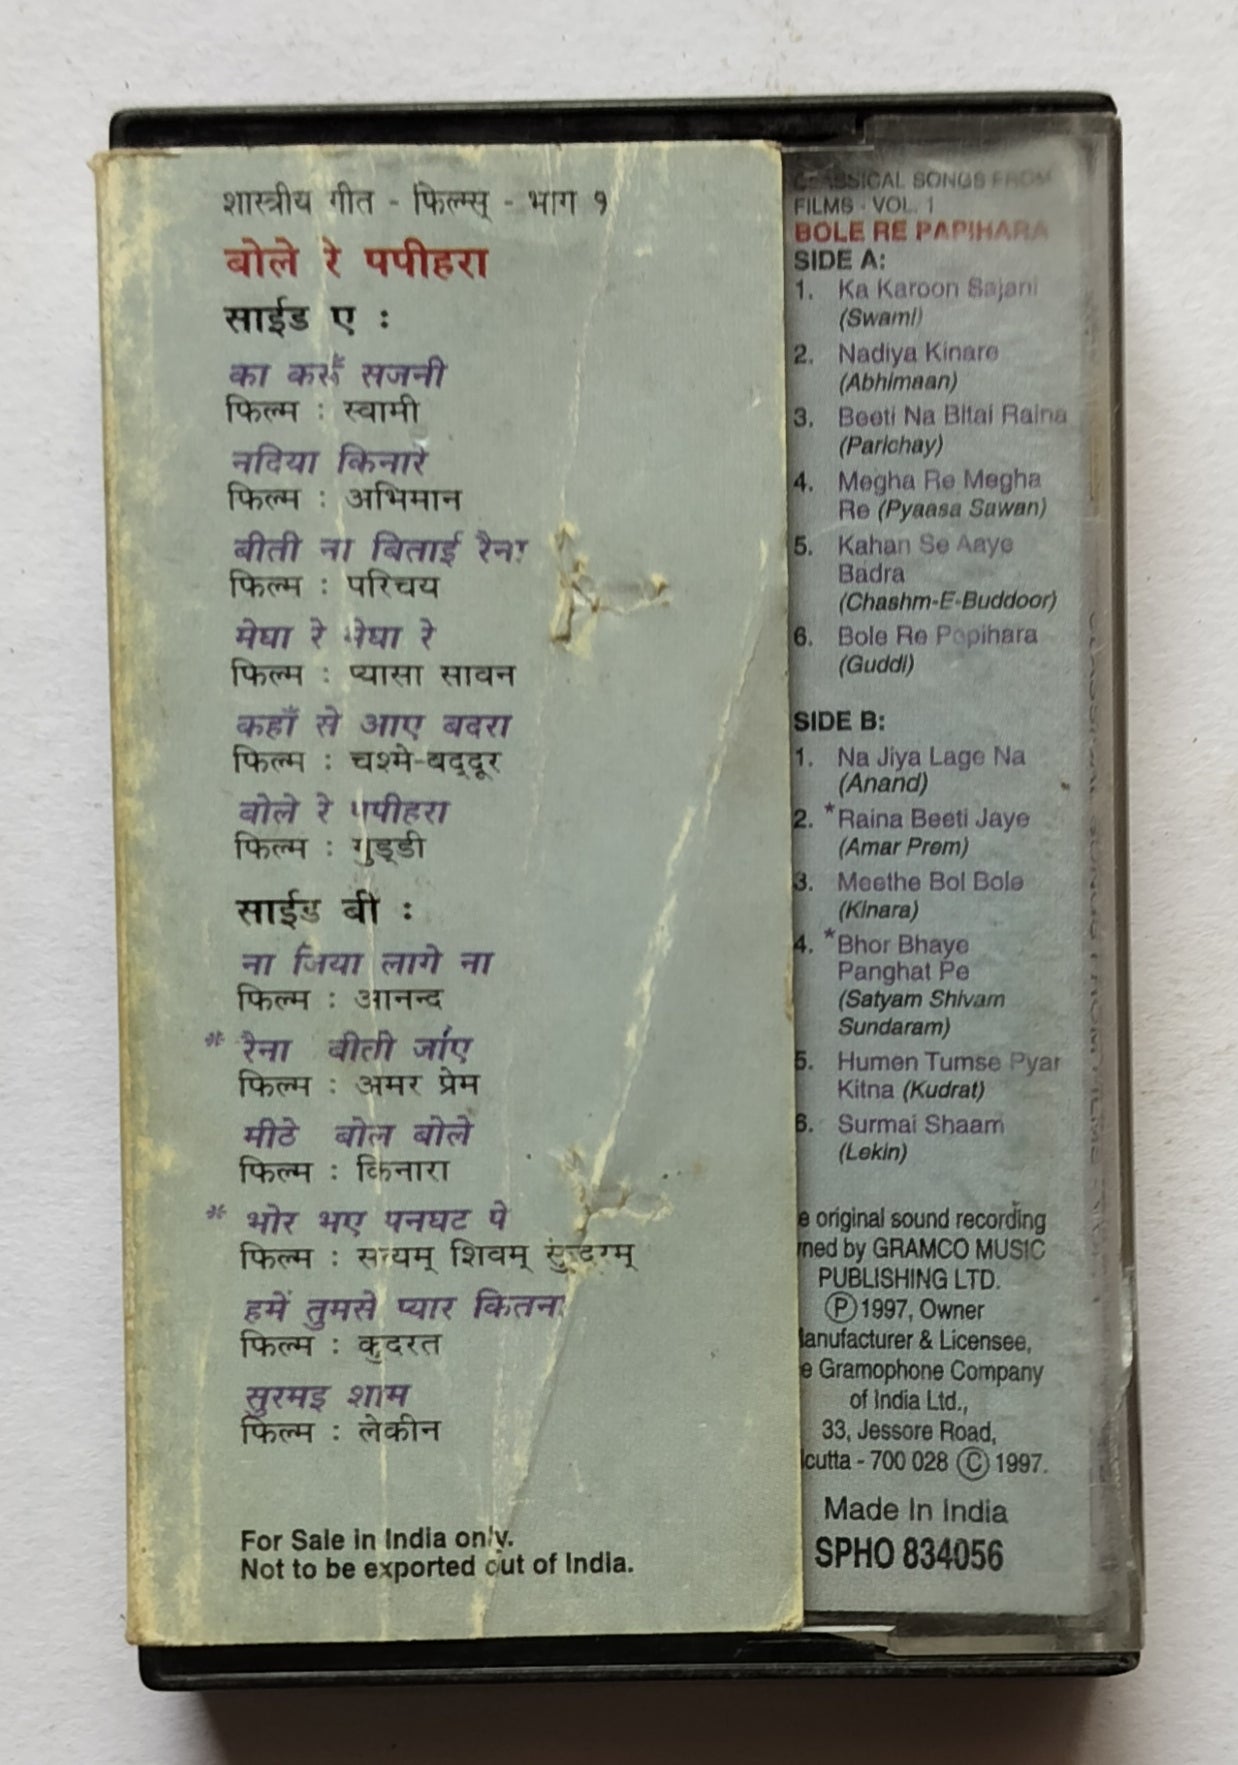 शास्त्रीय गीत - फिल्म्स् - भाग १
बोले रे पपीहरा
साईड ए :
का करूँ सजनी
फिल्म : स्वामी
नदिया किनारे
फिल्म : अभिमान
बीती ना बिताई रैना
फिल्म : परिचय
मेघा रे मेघा रे
फिल्म : प्यासा सावन
कहाँ से आए बदरा
फिल्म : चश्मे-बद्दूर
बोले रे पपीहरा
फिल्म : गुड्डी
साईड बी :
ना जिया लागे ना
फिल्म : आनन्द
* रैना बीती जाए
फिल्म : अमर प्रेम
मीठे बोल बोले
फिल्म : किनारा
* भोर भए पनघट पे
फिल्म : सत्यम् शिवम् सुन्दरम्
हमें तुमसे प्यार कितना
फिल्म : कुदरत
सुरमइ शाम
फिल्म : लेकीन
For Sale in India only.
Not to be exported out of India.
CLASSICAL SONGS FROM
FILMS - VOL. 1
BOLE RE PAPIHARA
SIDE A:
1. Ka Karoon Sajani
(Swami)
2. Nadiya Kinare
(Abhimaan)
3. Beeti Na Bitai Raina
(Parichay)
4. Megha Re Megha
Re (Pyaasa Sawan)
5. Kahan Se Aaye
Badra
(Chashm-E-Buddoor)
6. Bole Re Papihara
(Guddi)
SIDE B:
1. Na Jiya Lage Na
(Anand)
2. *Raina Beeti Jaye
(Amar Prem)
3. Meethe Bol Bole
(Kinara)
4. *Bhor Bhaye
Panghat Pe
(Satyam Shivam
Sundaram)
5. Humen Tumse Pyar
Kitna (Kudrat)
6. Surmai Shaam
(Lekin)
original sound recording
by GRAMCO MUSIC
PUBLISHING LTD.
Ⓟ 1997, Owner
& Licensee,
Gramophone Company
of India Ltd.,
33, Jessore Road,
- 700 028 © 1997.
Made In India
SPHO 834056